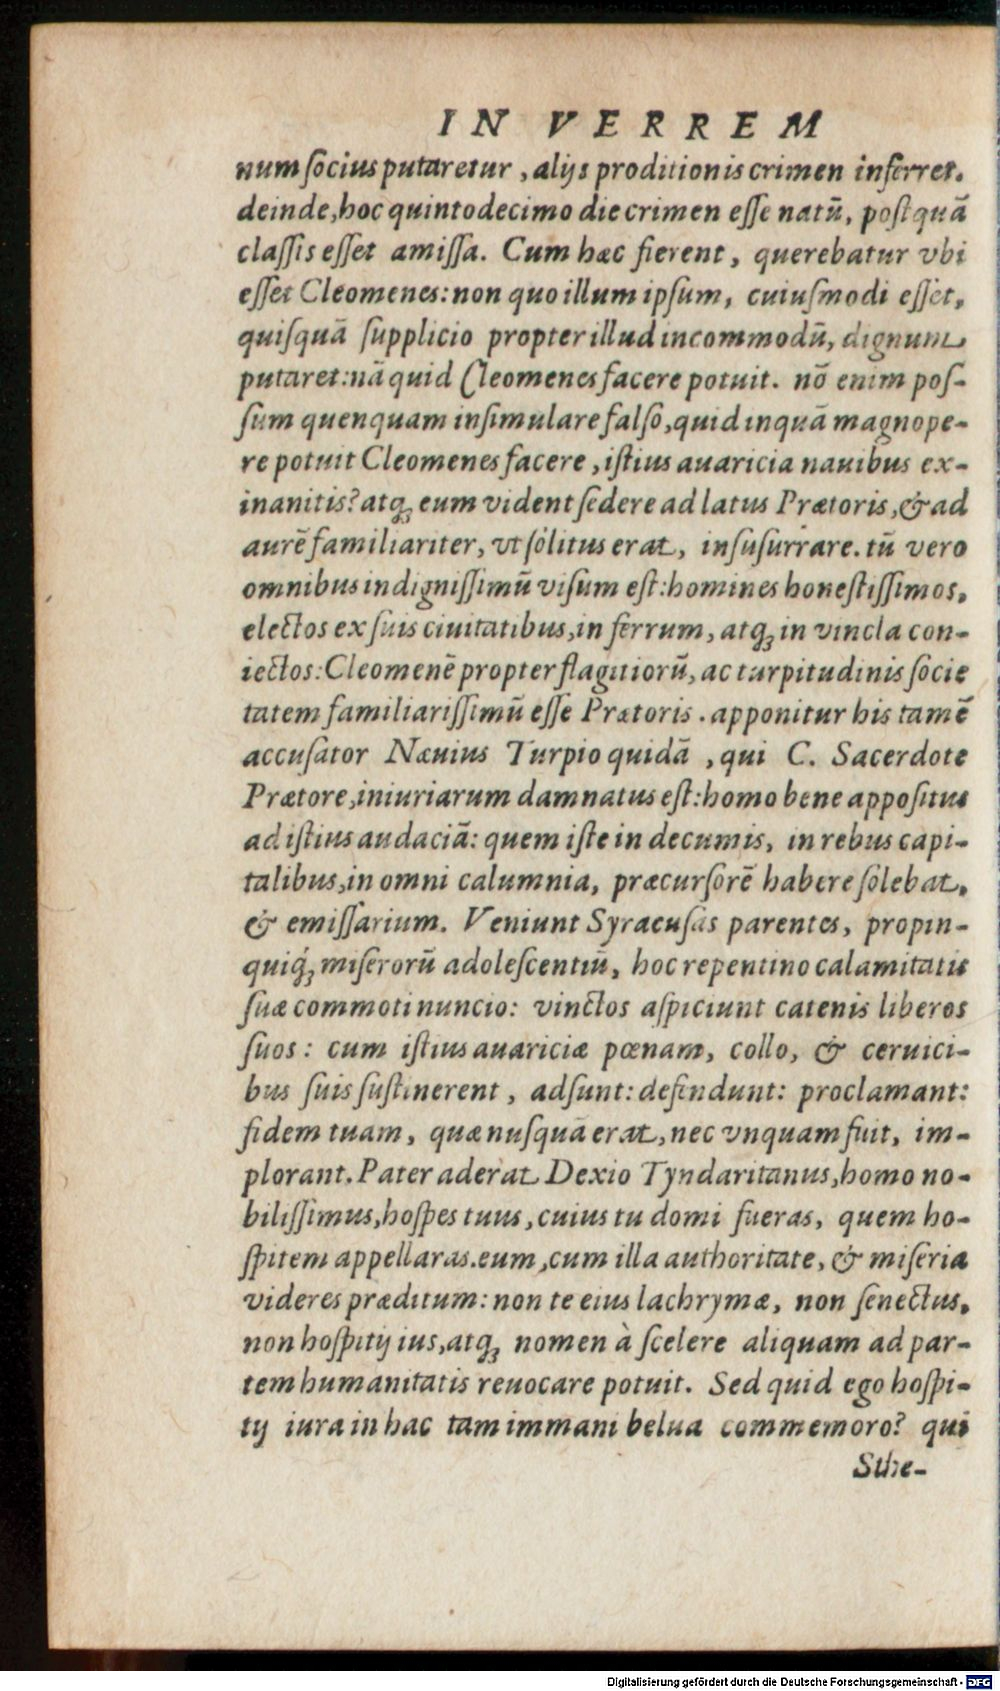 IN VERREM
num ſocius putaretur, alijs proditionis crimen inferret.
deinde, hoc quintodecimo die crimen eſſe natū, poſtquā
claſſis eſſet amiſſa. Cum hæc fierent, querebatur vbi
eſſet Cleomenes: non quo illum ipſum, cuiuſmodi eſſet,
quiſquā ſupplicio propter illud incommodū, dignum
putaret: nā quid Cleomenes facere potuit. nō enim poſ-
ſum quenquam inſimulare falſo, quid inquā magnope-
re potuit Cleomenes facere, iſtius auaricia nauibus ex-
inanitis? atq; eum vident ſedere ad latus Prætoris, & ad
aurē familiariter, vt ſolitus erat, inſuſurrare. tū vero
omnibus indigniſſimū viſum eſt: homines honeſtiſſimos,
electos ex ſuis ciuitatibus, in ferrum, atq; in vincla con-
iectos: Cleomenē propter flagitiorū, ac turpitudinis ſocie
tatem familiariſſimū eſſe Prætoris. apponitur his tamē
accuſator Næuius Turpio quidā, qui C. Sacerdote
Prætore, iniuriarum damnatus eſt: homo bene appoſitus
ad iſtius audaciā: quem iſte in decumis, in rebus capi-
talibus, in omni calumnia, præcurſorē habere ſolebat,
& emiſſarium. Veniunt Syracuſas parentes, propin-
quiq́; miſerorū adoleſcentiū, hoc repentino calamitatis
ſuæ commoti nuncio: vinctos aſpiciunt catenis liberos
ſuos: cum iſtius auariciæ pœnam, collo, & ceruici-
bus ſuis ſuſtinerent, adſunt: defendunt: proclamant:
fidem tuam, quæ nuſquā erat, nec vnquam fuit, im-
plorant. Pater aderat Dexio Tyndaritanus, homo no-
biliſſimus, hoſpes tuus, cuius tu domi fueras, quem ho-
ſpitem appellaras. eum, cum illa authoritate, & miſeria
videres præditum: non te eius lachrymæ, non ſenectus,
non hoſpitij ius, atq; nomen à ſcelere aliquam ad par-
tem humanitatis reuocare potuit. Sed quid ego hoſpi-
tij iura in hac tam immani belua commemoro? qui
Sthe-
Digitalisierung gefördert durch die Deutsche Forschungsgemeinschaft - DFG